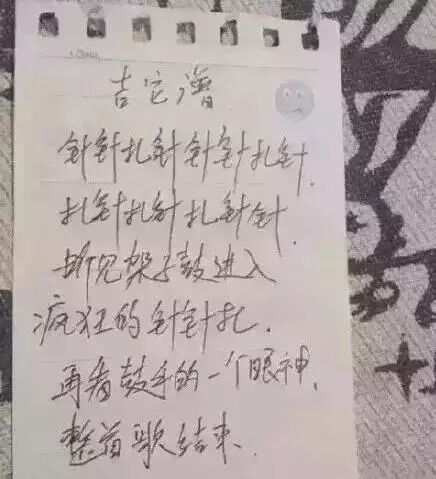 吉它谱
针针扎针针针扎针.
扎针扎针扎针针
听见架子鼓进入
疯狂的针针扎.
再看鼓手的一个眼神.
整首歌结束.